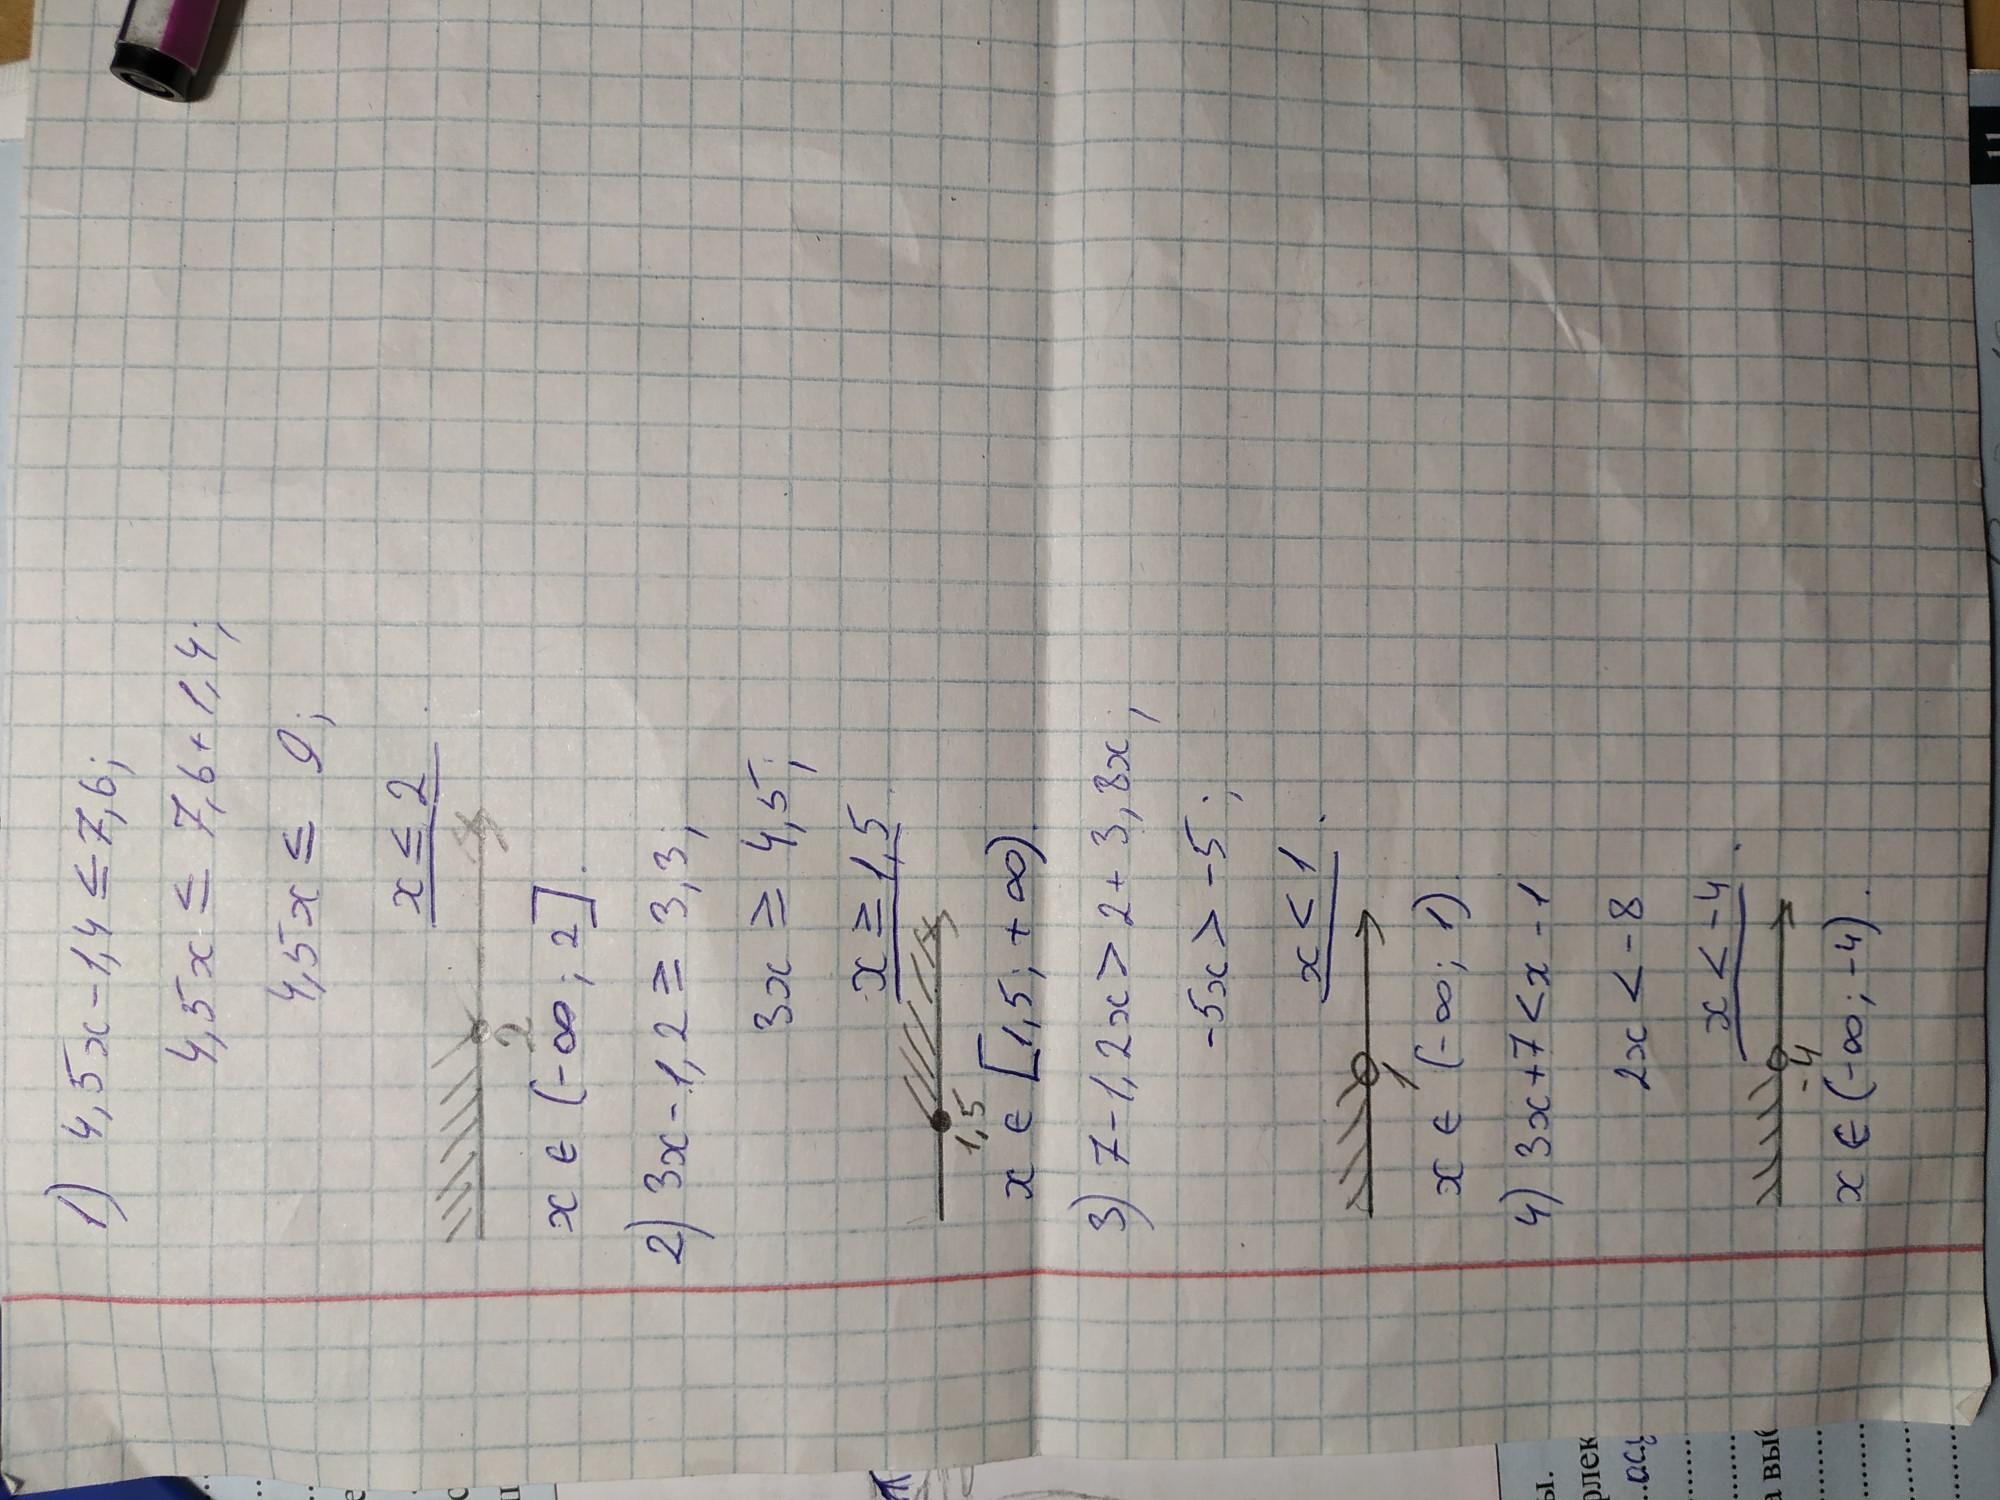 1) 4,5x-1,4≤7,6;
4,5x≤ 7,6+1,4;
4,5x≤ 9;
x≤2.
2
x∈(-∞;2].
2) 3x-1,2≥3,3;
3x≥4,5;
x≥1,5.
1,5
x∈[1,5;+∞).
3) 7-1,2x>2+3,8x;
-5x>-5;
x<1.
1
x∈(-∞;1).
4) 3x+7<x-1
2x<-8
x<-4.
-4
x∈(-∞;-4).
11